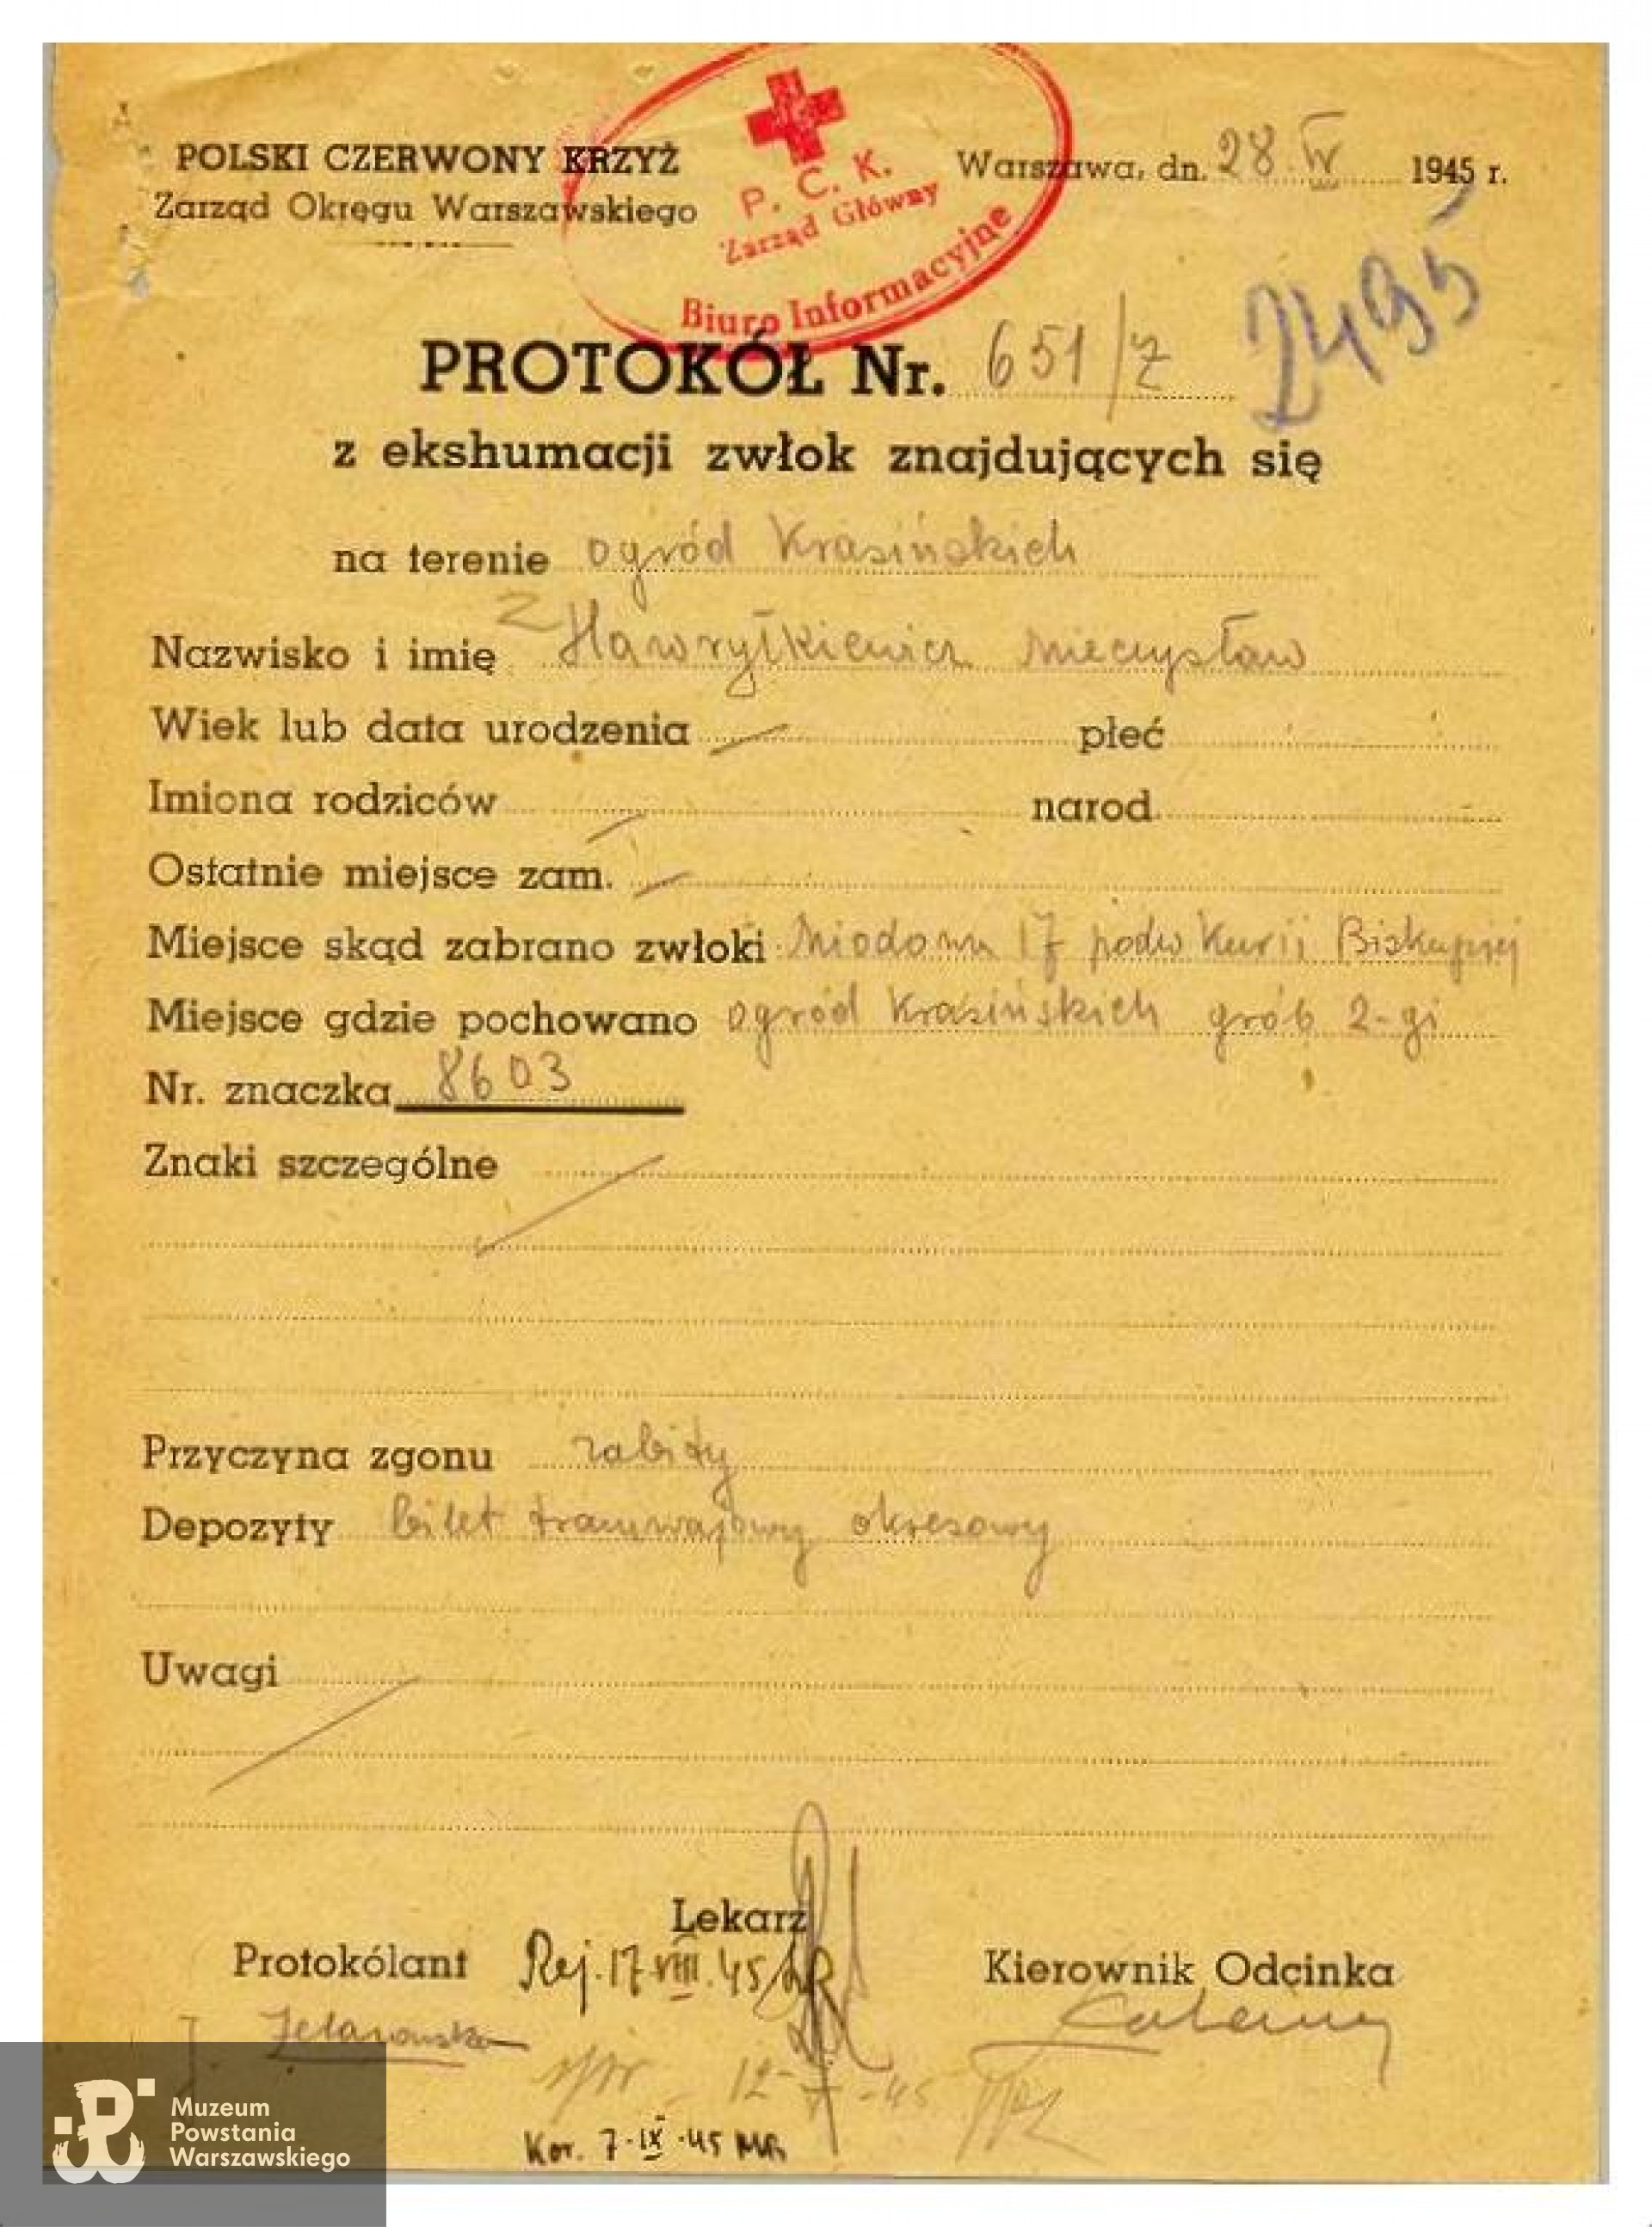 POLSKI CZERWONY KRZYŻ
Zarząd Okręgu Warszawskiego
P. C. K.
Zarząd Główny
Biuro Informacyjne
Warszawa, dn. 28 IV 1945 r.
2495
PROTOKÓŁ Nr. 651/Z
z ekshumacji zwłok znajdujących się
na terenie ogród Krasińskich
Z
Nazwisko i imię Hawryłkiewicz Mieczysław
Wiek lub data urodzenia — płeć
Imiona rodziców — narod.
Ostatnie miejsce zam. —
Miejsce skąd zabrano zwłoki Miodowa 17 podw Kurii Biskupiej
Miejsce gdzie pochowano ogród Krasińskich grób 2-gi
Nr. znaczka 8603
Znaki szczególne
Przyczyna zgonu zabity
Depozyty bilet tramwajowy okresowy
Uwagi
Lekarz
Protokólant Rej. 17 VIII. 45 Kierownik Odcinka
12 - 45
Kor. 7 · IX · 45 MR
Muzeum
Powstania
Warszawskiego